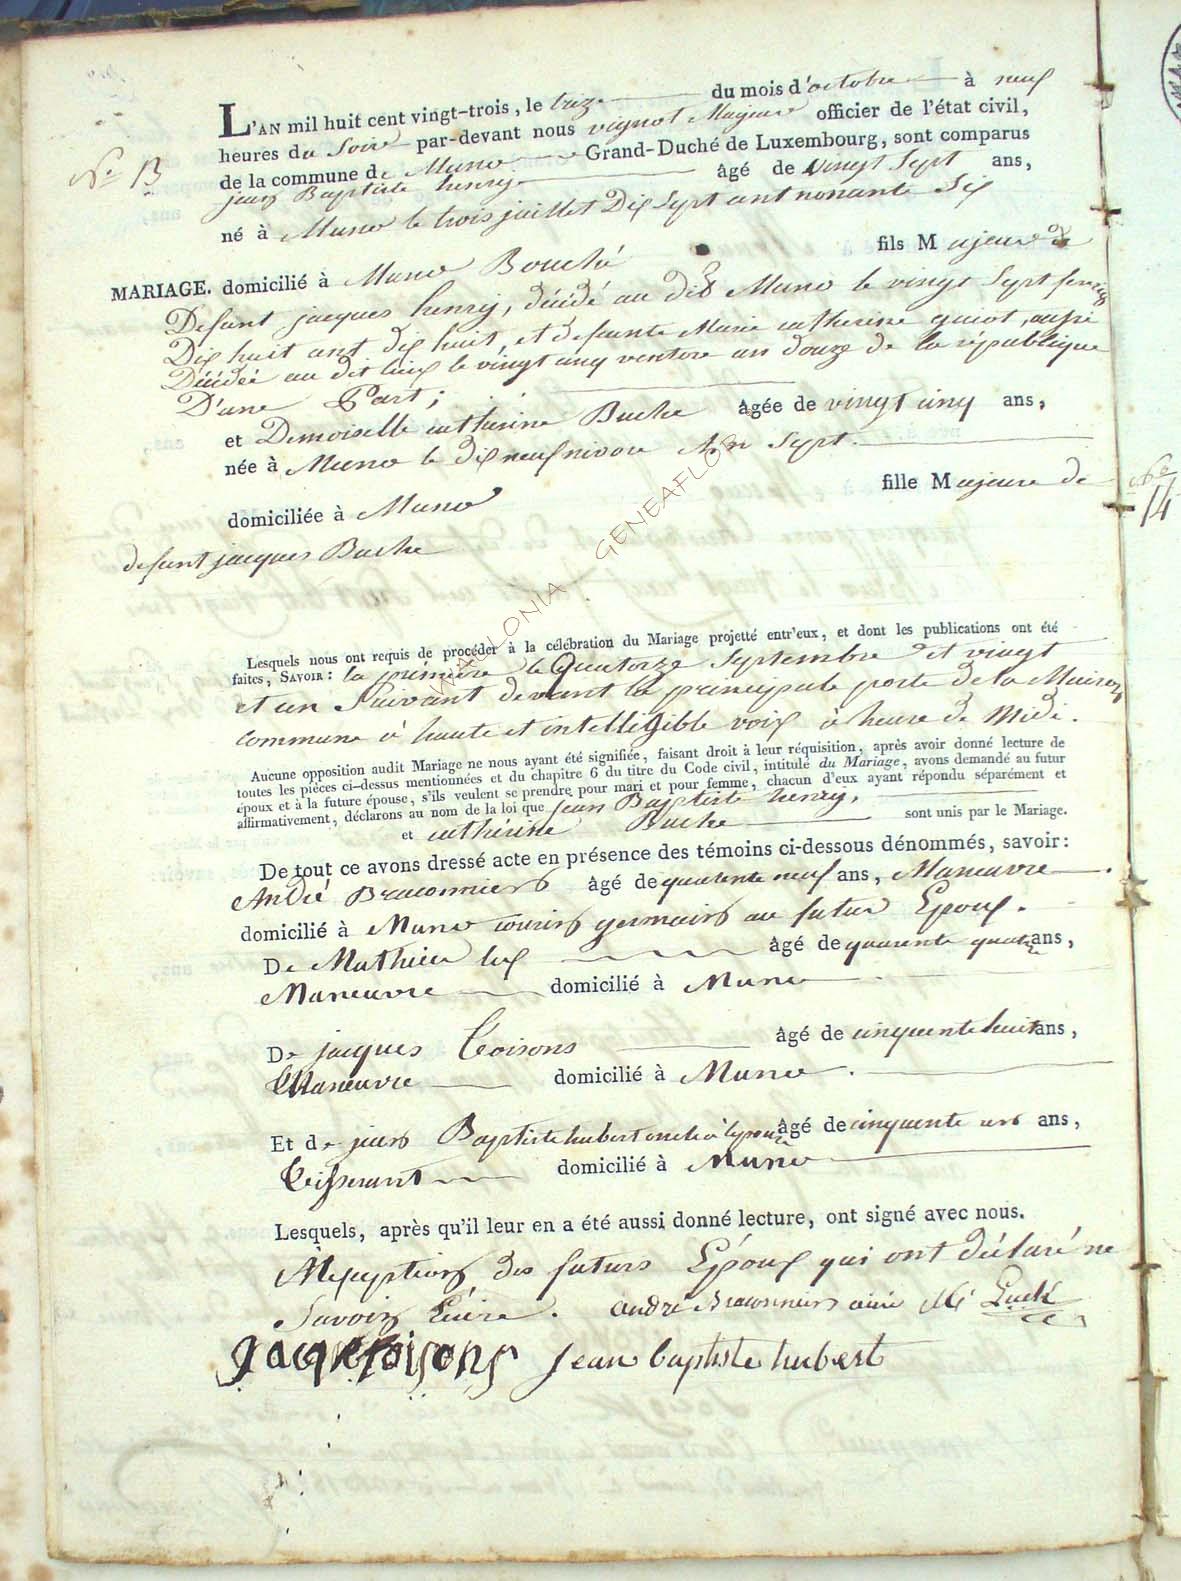 L'AN mil huit cent vingt-trois, le treize du mois d'octobre à neuf
heures du Soir par-devant nous vignot Majeur officier de l'état civil,
de la commune de Muno Grand-Duché de Luxembourg, sont comparus
N° 13
jean Baptiste henry âgé de vingt Sept ans,
né à Muno le trois juillet Dix Sept cent nonante Six
fils Majeur de
MARIAGE. domicilié à Muno Bouché
Defunt jacques henry, décédé au dit Muno le vingt Sept fevrier
Dix huit cent dix huit, et defunte Marie catherine quiot, aussi
Décédée au dit lieux le vingt cinq ventose an douze de la république
D'une Part;
et Demoiselle catherine Buche âgée de vingt cinq ans,
née à Muno le dix neuf nivose An Sept.
fille Majeure de
domiciliée à Muno
defunt jacques Buche
N° 14
WALLONIA GENEAFLOR
Lesquels nous ont requis de procéder à la célébration du Mariage projetté entr'eux, et dont les publications ont été
faites, SAVOIR: la première le Quatorze Septembre et vingt
et un Suivant devant la principale porte de la Maison
commune à haute et intelligible voix à heure de Midi.
Aucune opposition audit Mariage ne nous ayant été signifiée, faisant droit à leur réquisition, après avoir donné lecture de
toutes les pièces ci-dessus mentionnées et du chapitre 6 du titre du Code civil, intitulé du Mariage, avons demandé au futur
époux et à la future épouse, s'ils veulent se prendre pour mari et pour femme, chacun d'eux ayant répondu séparément et
affirmativement, déclarons au nom de la loi que jean Baptiste henry,
et cathérine Buche sont unis par le Mariage.
De tout ce avons dressé acte en présence des témoins ci-dessous dénommés, savoir:
André Braconniers âgé de quarente neuf ans, Maneuvre
domicilié à Muno cousins germains au futur Epoux.
De Mathieu lux âgé de quarente quatre ans,
Maneuvre domicilié à Muno
De jacques Toisons âgé de cinquente huit ans,
Maneuvre domicilié à Muno.
Et de jean Baptiste hubert oncle à l'epouse âgé de cinquente ans ans,
Tisserant domicilié à Muno
Lesquels, après qu'il leur en a été aussi donné lecture, ont signé avec nous.
A l'exception des futurs Epoux qui ont déclaré ne
Savoir Ecrire. andré Braconniers
jacque toisons jean baptiste hubert